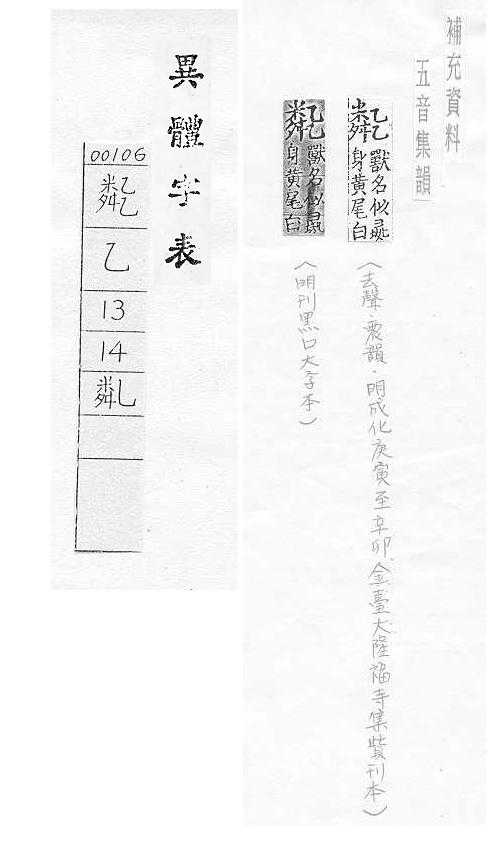 補充資料
五音集韻
獸名似
身黃尾白
（去聲．震韻．明成化庚寅至辛卯、金臺大隆福寺集貲刊本）
獸名似
身黃尾白
（明刊黑口大字本）
異體字表
00106
乙
13
14